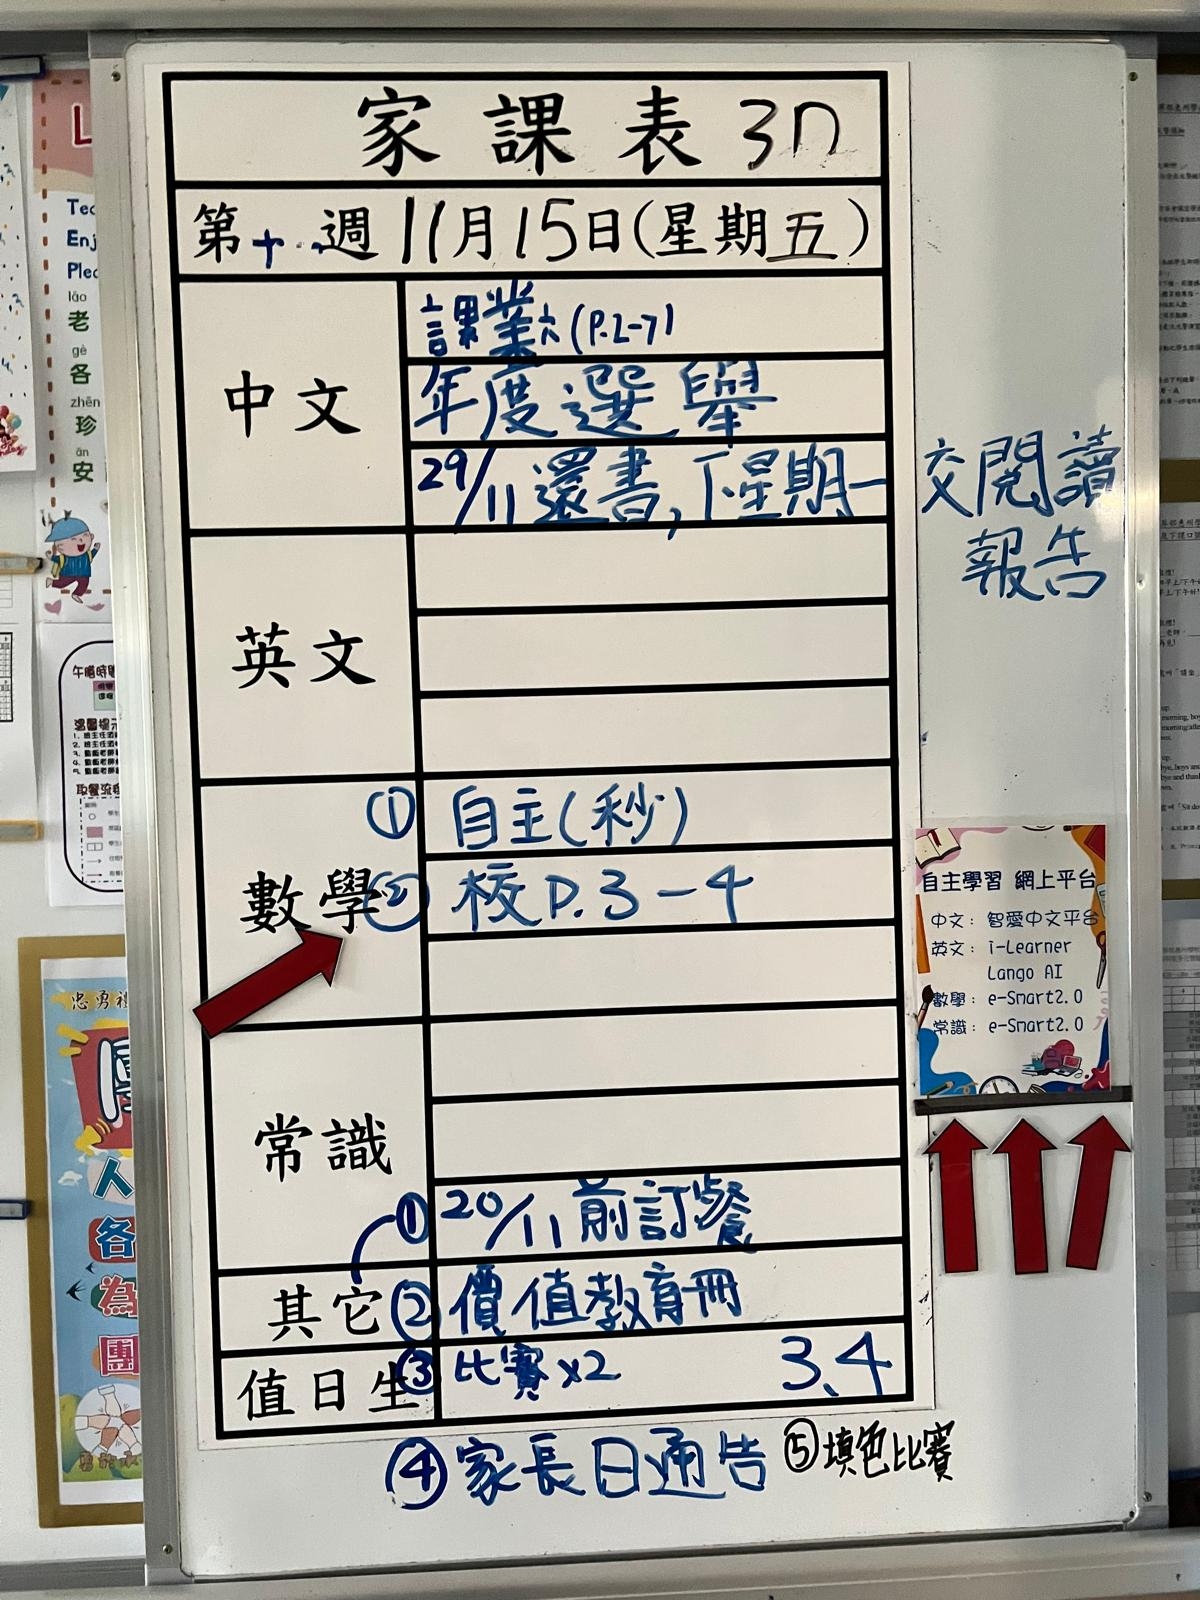 家課表 3n
第十週 11月15日(星期五)
中文
課業六(P.2-7)
年度選舉
29/11 還書,下星期一
交閱讀
報告
英文
數學
① 自主(秒)
② 校P.3-4
常識
① 20/11前訂餐
其它
② 價值教育冊
值日生
③ 比賽x2
3、4
④ 家長日通告
⑤ 填色比賽
自主學習 網上平台
中文: 智愛中文平台
英文: i-Learner
Lango AI
數學: e-Smart2.0
常識: e-Smart2.0
lǎo
老
gè
各
zhēn
珍
ān
安
溫馨提示
忠勇
人
各
為
團